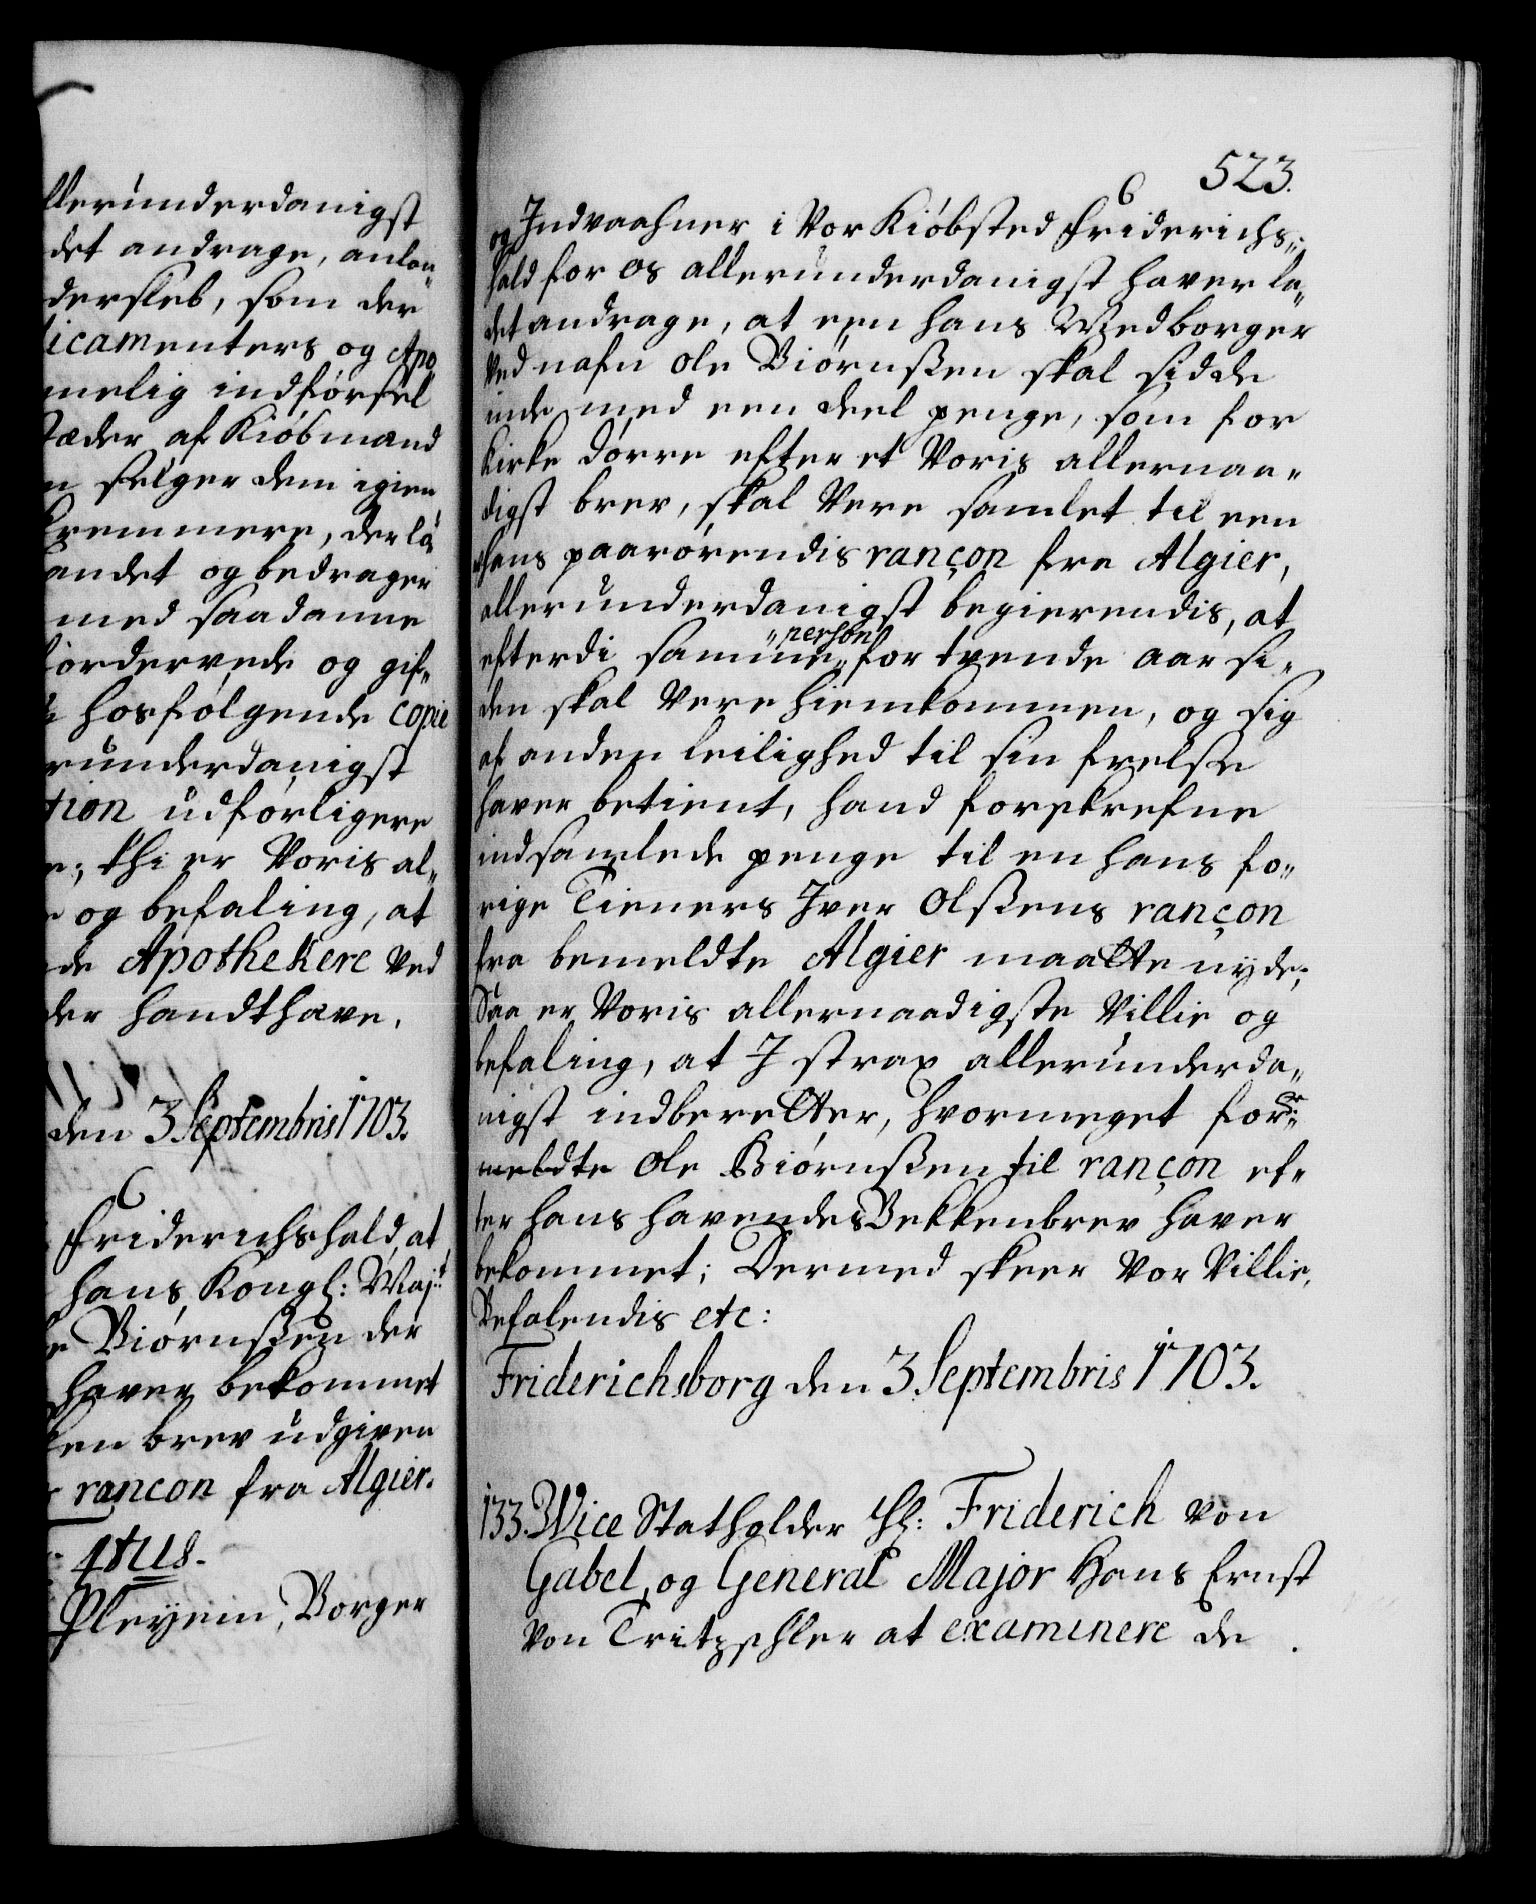 llerunderdanigst
det andrage, anlan„
dersleb, som der
icamenters og Apo
melig indførsel
stæder af Kiøbmænd
n selger dem igien
Cremmere, der la
andet og bedrager
med saadanne
fordervede og gif„
hosfølgende copie
runderdanigst
tion udførligere
e; thi er Voris al„
e og befaling, at
de Apothekere ved
der handthæve.
den 3 Septembris 1703.
Friderichshald, at
hans Kongl: Maj:t
e Biørnßen der
haver bekommet
ken brev udgiven
rancon fra Algier.
4tus.
Pleyein, Borger
523.
og Indvaahner i Vor Kiøbsted Friderichs„
hald for os allerunderdanigst haver la„
det andrage, at een hans Medborger
ved nafn Ole Biørnßen skal sidde
inde med een deel penge, som for
Kirke dørre efter et Voris allernaa„
digst brev, skal Vere samlet til een
hans paarørendis rançon fra Algier,
allerunderdanigst begierendis, at
efterdi samme „person„ for tvende aar si„
den skal Vere hiemkommen, og sig
af anden leilighed til sin frelse
haver betient, hand forskrefne
indsamlede penge til en hans fo„
rige Tieners Iver Olßens rançon
fra bemeldte Algier maatte nyde;
Saa er Voris allernaadigste Villie og
befaling, at I strax allerunderda„
nigst indberetter, hvormeget for:ne
meldte Ole Biørnßen til rançon ef„
ter hans havendes Bekkenbrev haver
bekommet; Dermed skeer Vor Villie,
Befalendis etc:
Friderichsborg den 3 Septembris 1703.
133. Vice Statholder Hl: Friderich von
Gabel, og General Major Hans Ernst
von Tritzschler at examinere de